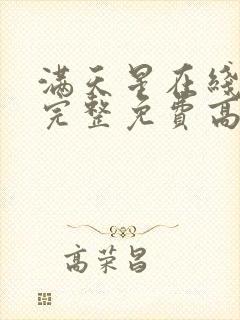 满天星在线
完整免費高
高荣昌